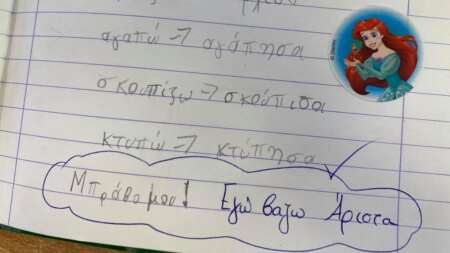 αγαπώ → αγάπησα
σκουπίζω → σκούπισα
κτυπώ → κτύπησα
Μπράβο μου! Εγώ βαζω Άριστα